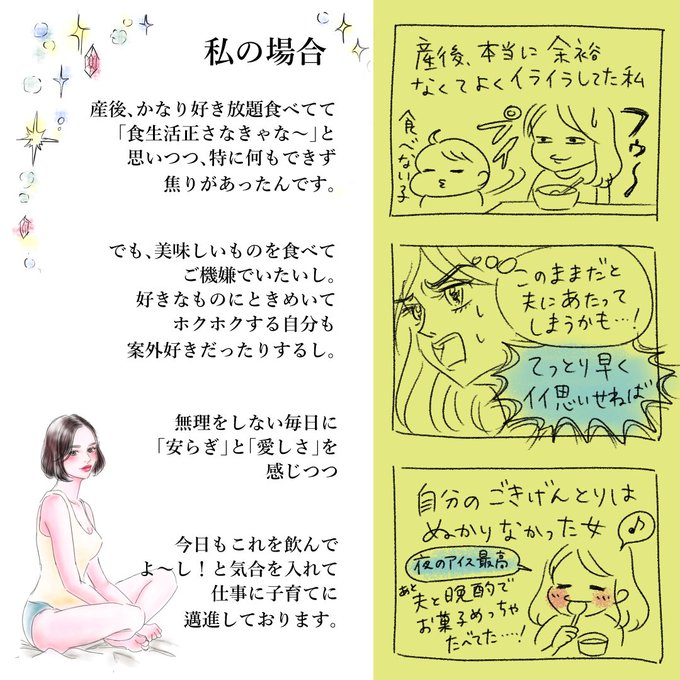 私の場合
産後、かなり好き放題食べてて
「食生活正さなきゃな〜」と
思いつつ、特に何もできず
焦りがあったんです。
でも、美味しいものを食べて
ご機嫌でいたいし。
好きなものにときめいて
ホクホクする自分も
案外好きだったりするし。
無理をしない毎日に
「安らぎ」と「愛しさ」を
感じつつ
今日もこれを飲んで
よ〜し！と気合を入れて
仕事に子育てに
邁進しております。
産後、本当に余裕
なくてよくイライラしてた私
フゥ〜
プイ
食べない子
このままだと
夫にあたって
しまうかも…!
てっとり早く
イイ思いせねば
自分のごきげんとりは
ぬかりなかった女
♪
夜のアイス最高
あと
夫と晩酌で
お菓子めっちゃ
たべてた…!